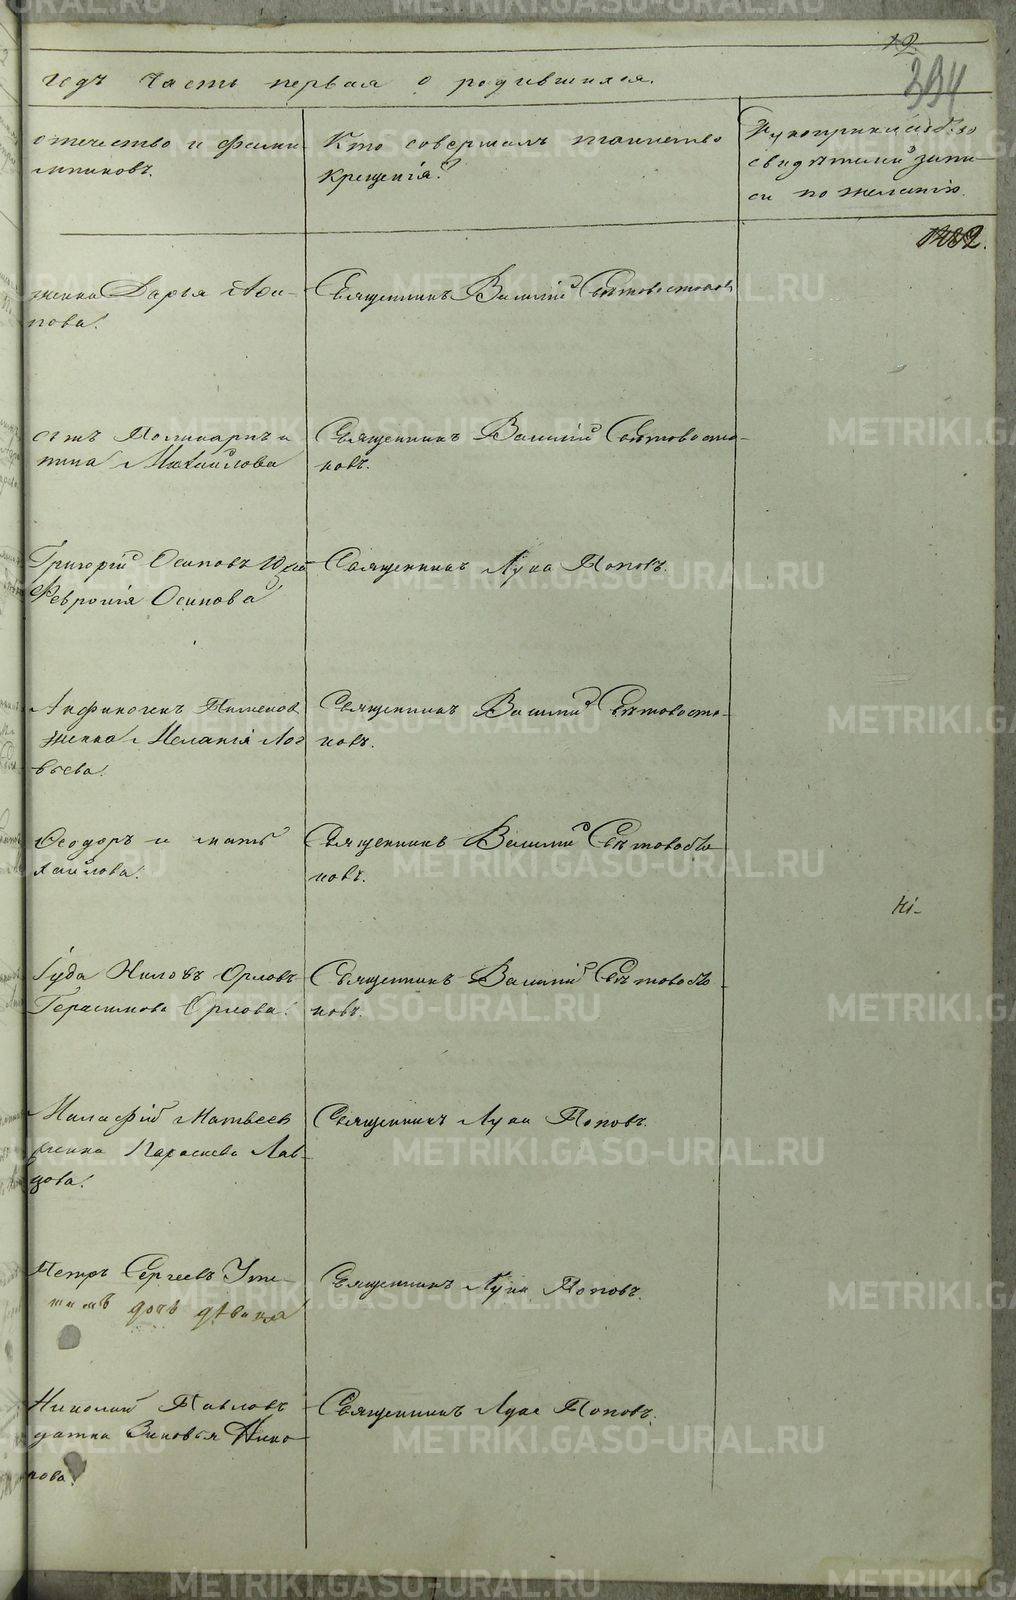 12.
394
годъ Часть первая о родившихся.
отчество и фами-
Кто совершалъ таинство
крещенія.
Рукоприкладство
свидѣтелей запи-
си по желанію.
жена Дарья
пова.
Священникъ Василій Свѣтовостоковъ
Поликарпъ и
Михайлова
Священникъ Василій Свѣтовосто-
ковъ.
Григорій Осиповъ
Феврония Осипова
Священникъ Лука Поповъ.
Анфиногенъ Пименов
жена Меланія Лог
вѣева.
Священникъ Василій Свѣтовосто-
ковъ.
Ѳеодоръ и мать
хайлова.
Священникъ Василій Свѣтовосто
ковъ.
Іуда Ниловъ Орловъ
Герасимова Орлова.
Священникъ Василій Свѣтовосто
ковъ.
Малафій Матвѣев
жена Параскева Лав
Священникъ Лука Поповъ.
Петръ Сергѣевъ
дочь дѣвица
Священникъ Лука Поповъ.
Николай Павловъ
датка Зиновья Нико
нова.
Священникъ Лука Поповъ.
METRIKI.GASO-URAL.RU